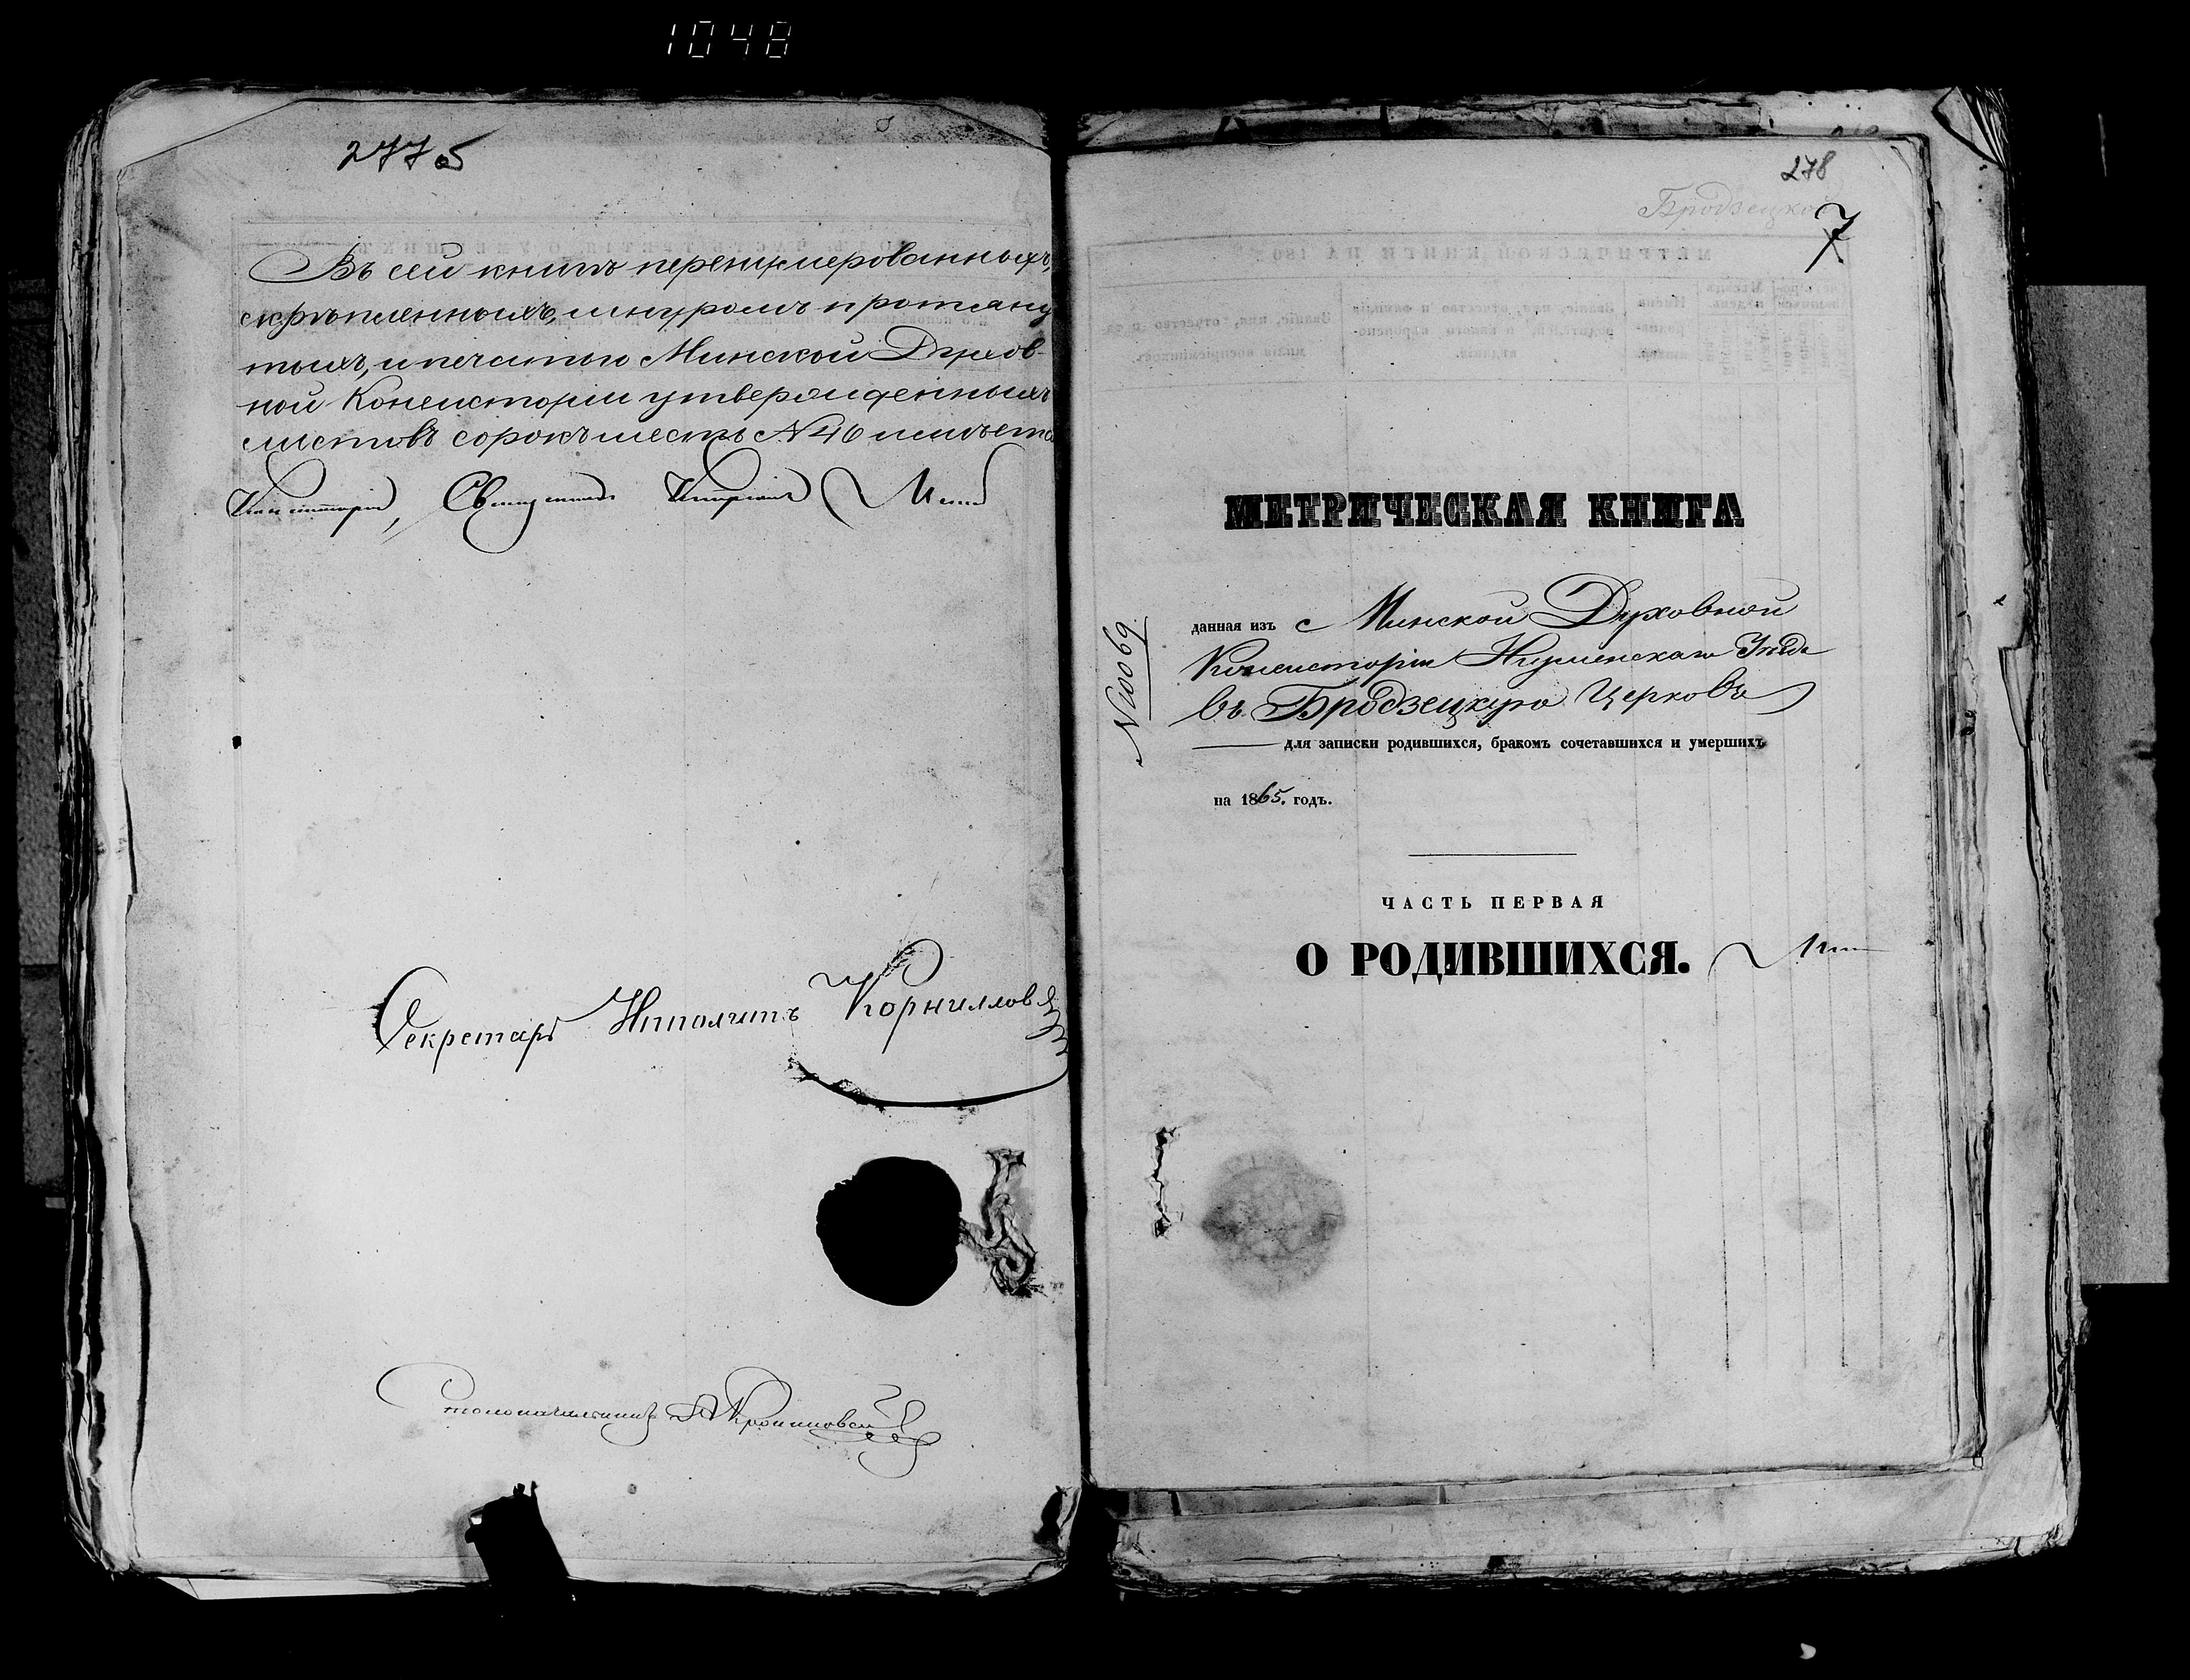 1048
277 об
Въ сей книгѣ перенумерованныхъ,
скрѣпленныхъ, шнуромъ протяну
тыхъ, и печатью Минской Духов-
ной Консисторіи утвержденныхъ
листовъ сорокъ шесть №46 имѣется
Консисторіи, Священникъ
Секретарь Ипполитъ Корниллов
Столоначальникъ
278
Бродзецкой
7
МЕТРИЧЕСКАЯ КНИГА
данная изъ с Минской Духовной
Консисторіи Игуменскаго Уѣзда
въ Бродзецкую Церковь
для записки родившихся, бракомъ сочетавшихся и умершихъ
на 1865. годъ.
№10069.
ЧАСТЬ ПЕРВАЯ
О РОДИВШИХСЯ.